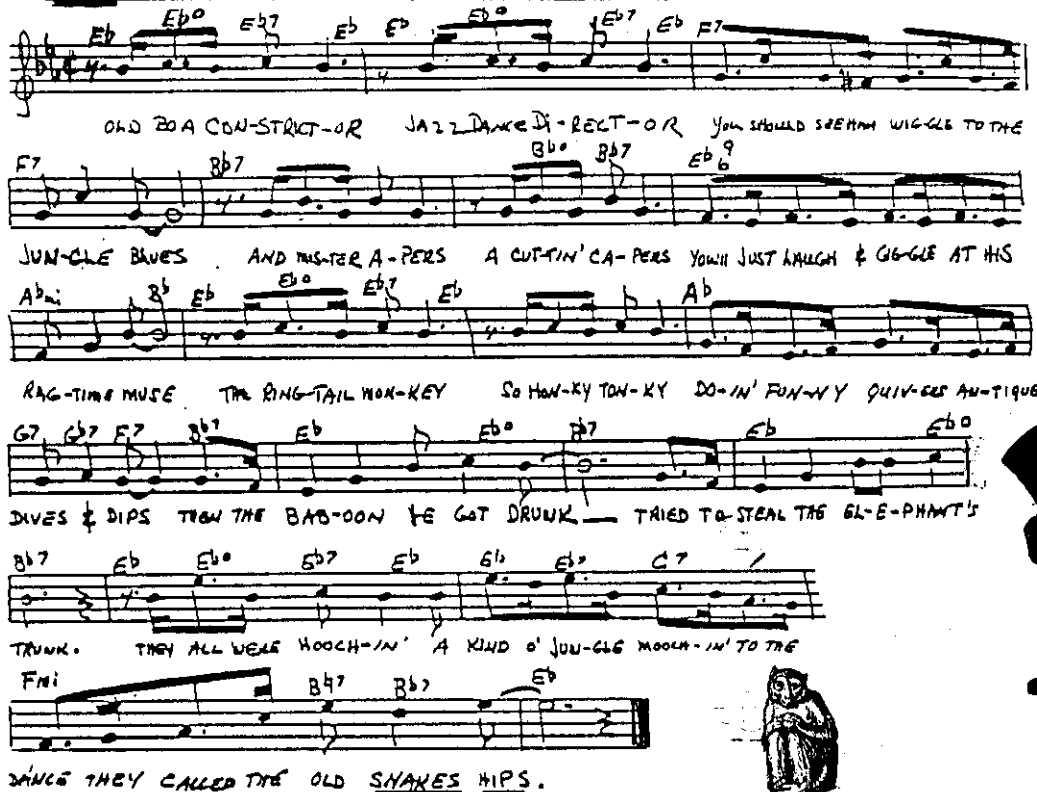 Eb Ebo Eb7 Eb Eb Ebo Eb7 Eb F7
OLD BOA CON-STRICT-OR JAZZ DANCE DI-RECT-OR YOU SHOULD SEE HIM WIG-GLE TO THE
F7 Bb7 Bbo Bb7 Eb 9 6
JUN-GLE BLUES AND MIS-TER A-PERS A CUT-TIN' CA-PERS YOU'LL JUST LAUGH & GIG-GLE AT HIS
Abmi Bb Eb Ebo Eb7 Eb Ab
RAG-TIME MUSE THE RING-TAIL MON-KEY SO HON-KY TON-KY DO-IN' FUN-NY QUIV-ERS AN-TIQUE
G7 Gb7 F7 Bb7 Eb Ebo Bb7 Eb Ebo
DIVES & DIPS THEN THE BAB-OON HE GOT DRUNK — TRIED TO STEAL THE EL-E-PHANT'S
Bb7 Eb Ebo Eb7 Eb Eb Eb7 C7
TRUNK. THEY ALL WERE HOOCH-IN' A KIND O' JUN-GLE MOOCH-IN' TO THE
Fmi B7 Bb7 Eb
DANCE THEY CALLED THE OLD SNAKES HIPS.